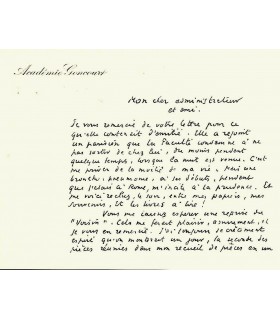 Académie Goncourt
Mon cher administrateur
et ami,
Je vous remercie de votre lettre pour ce
qu'elle contenait d'amitié. Elle a rejoint
un parisien que la Faculté condamne à ne
pas sortir de chez lui, du moins pendant
quelque temps, lorsque la nuit est venue. C'est
me priver de la moitié de ma vie. Mais une
broncho-pneumonie, à ses débuts, pendant
que j'étais à Rome, m'incite à la prudence. Et
me voici reclus, le soir, entre mes papiers, mes
souvenirs, et les livres à lire !
Vous me laissez espérer une reprise de
"Voisin". Cela me ferait plaisir, assurément, et
je vous en remercie. J'ai toujours secrètement
espéré qu'on montrerait un jour, la seconde des
pièces réunies dans mon recueil de pièces en un